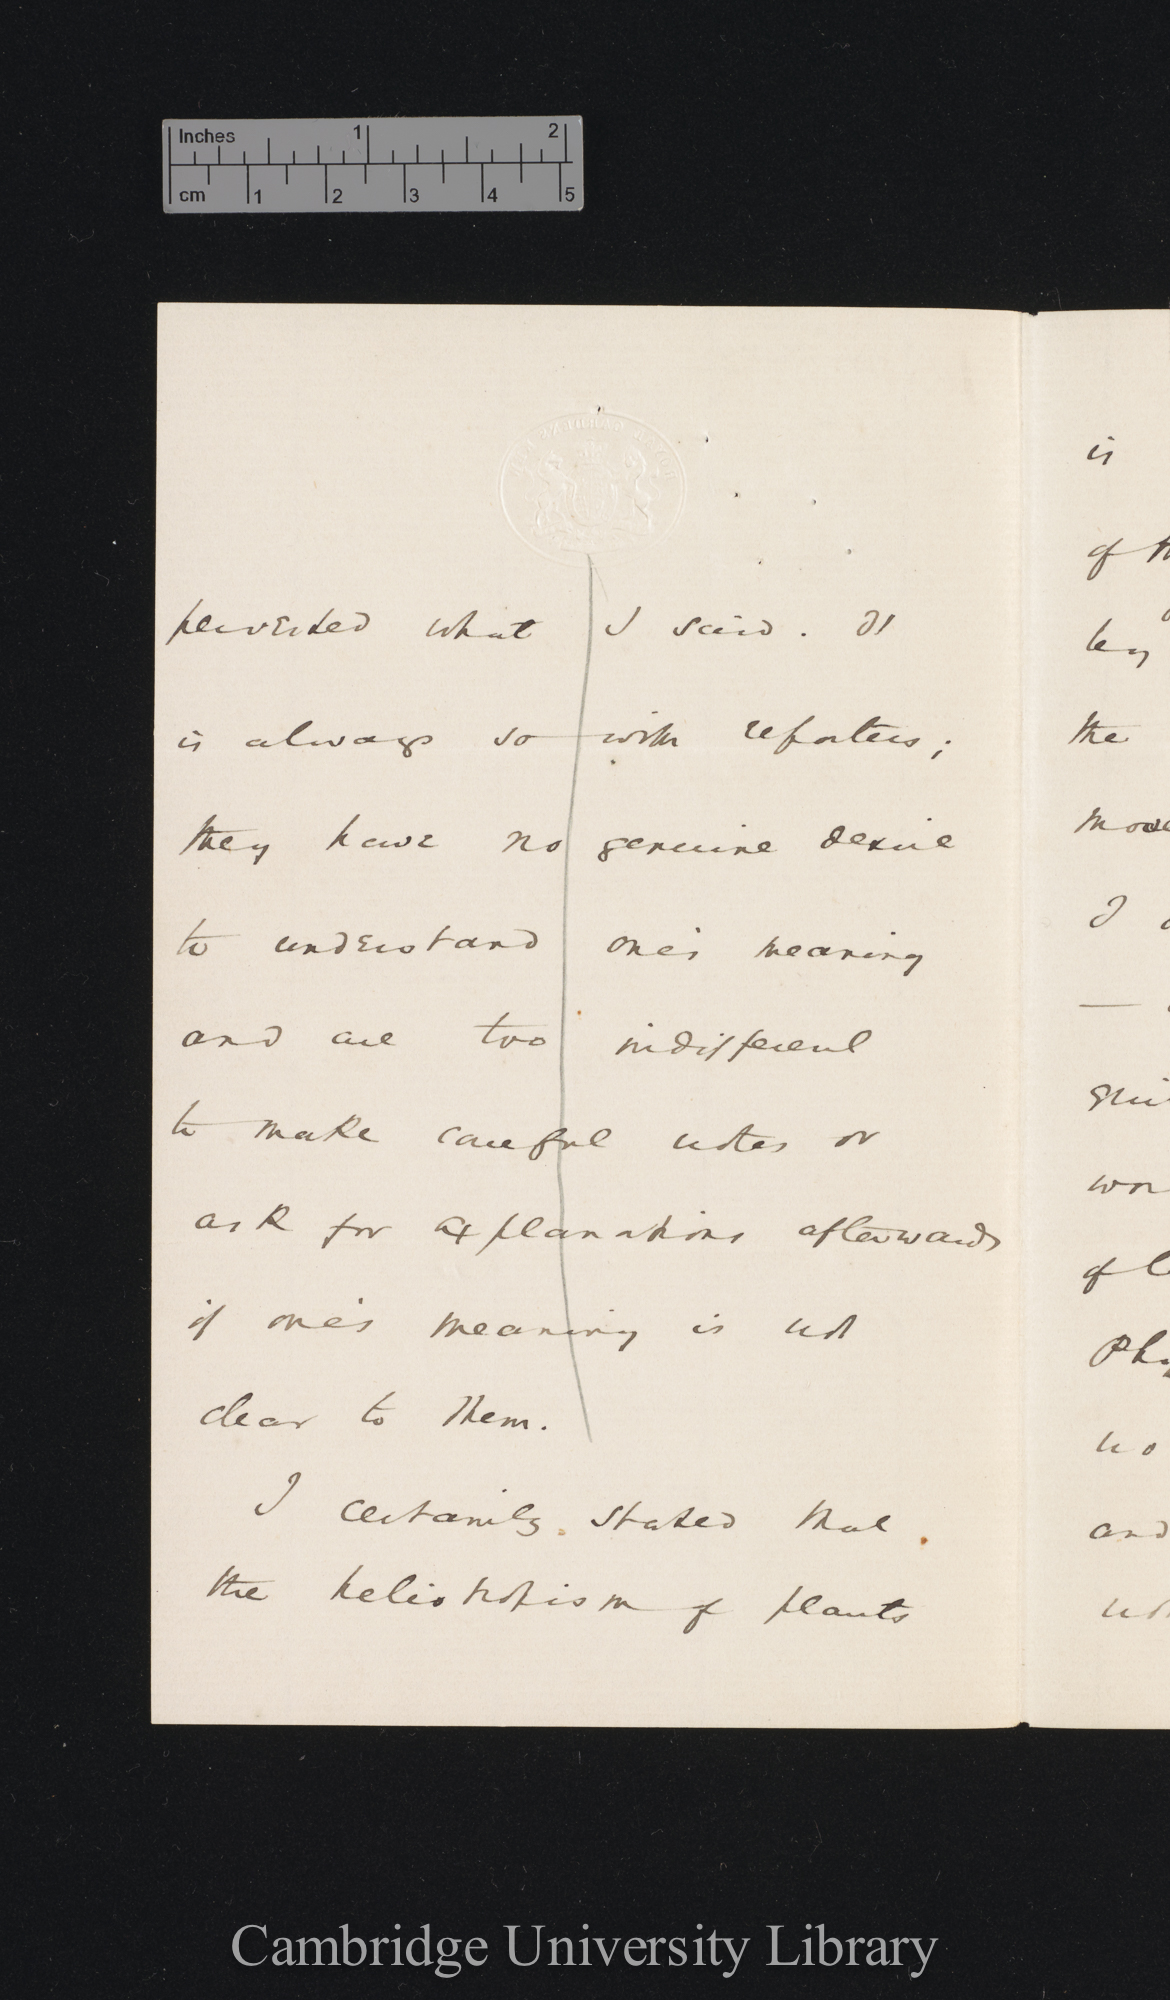 Inches 1 2
cm 1 2 3 4 5
perverted what I said. It
is always so with reporters;
they have no genuine desire
to understand one's meaning
and are too indifferent
to make careful notes or
ask for explanations afterwards
if one's meaning is not
clear to them.
I certainly stated that
the heliotropism of plants
is
of
the
I
—
of
no
and
Cambridge University Library